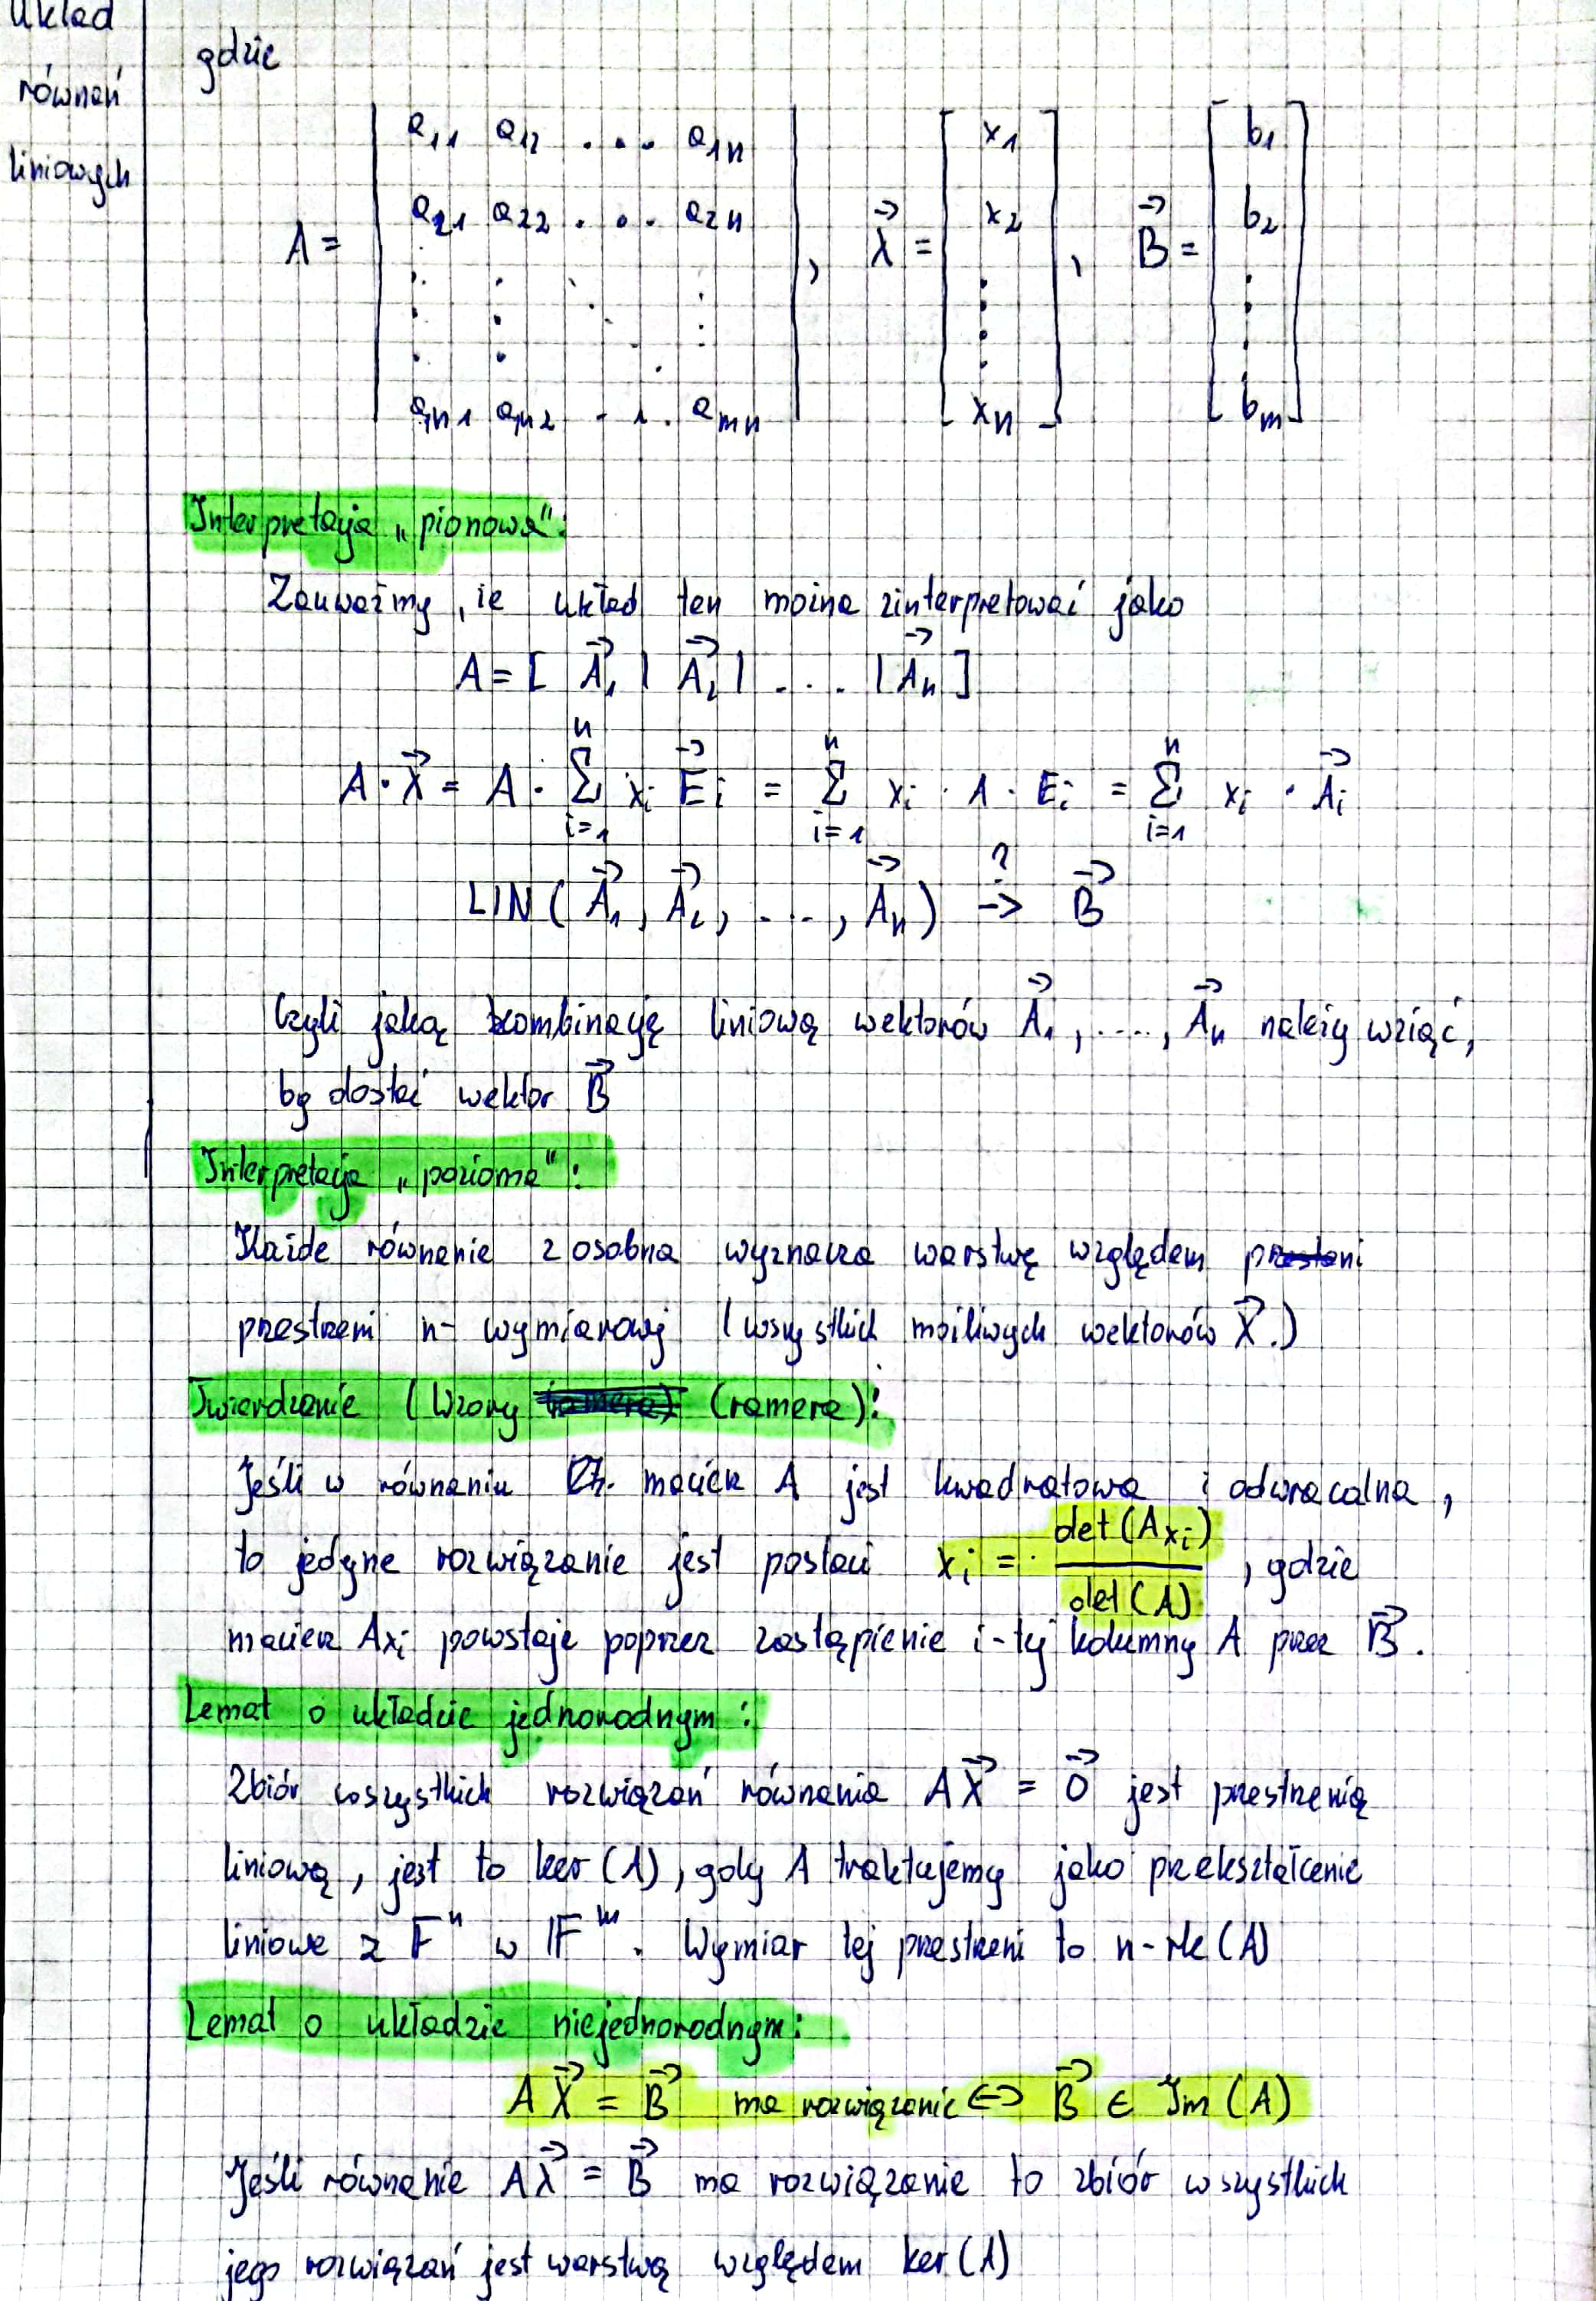 układ
równań
liniowych
gdzie
A = | a₁₁ a₁₂ . . . a₁ₙ | , X⃗ = [ x₁ ] , B⃗ = [ b₁ ]
a₂₁ a₂₂ . . . a₂ₙ x₂ b₂
. . . . . .
aₘ₁ aₘ₂ . . . aₘₙ xₙ bₘ
Interpretacja „pionowa":
Zauważmy, że układ ten można zinterpretować jako
A = [ A⃗₁ | A⃗₂ | . . . . | A⃗ₙ ]
A · X⃗ = A · Σᵢ₌₁ⁿ xᵢ E⃗ᵢ = Σᵢ₌₁ⁿ xᵢ · A · Eᵢ = Σᵢ₌₁ⁿ xᵢ · A⃗ᵢ
LIN ( A⃗₁, A⃗₂, . . . , A⃗ₙ ) →? B⃗
Czyli jaką kombinację liniową wektorów A⃗₁, ...., A⃗ₙ należy wziąć,
by dostać wektor B⃗
Interpretacja „pozioma":
Każde równanie z osobna wyznacza warstwę względem
przestrzeni n-wymiarowej (wszystkich możliwych wektorów X⃗.)
Twierdzenie (Wzory Cramera):
Jeśli w równaniu macierz A jest kwadratowa i odwracalna,
to jedyne rozwiązanie jest postaci xᵢ = det(Aₓᵢ) / det(A) , gdzie
macierz Aₓᵢ powstaje poprzez zastąpienie i-tej kolumny A przez B⃗.
Lemat o układzie jednorodnym:
Zbiór wszystkich rozwiązań równania AX⃗ = 0⃗ jest przestrzenią
liniową, jest to ker(A), gdy A traktujemy jako przekształcenie
liniowe z Fⁿ w Fᵐ. Wymiar tej przestrzeni to n-rk(A)
Lemat o układzie niejednorodnym:
AX⃗ = B⃗ ma rozwiązanie ⇔ B⃗ ∈ Im(A)
Jeśli równanie AX⃗ = B⃗ ma rozwiązanie to zbiór wszystkich
jego rozwiązań jest warstwą względem ker(A)